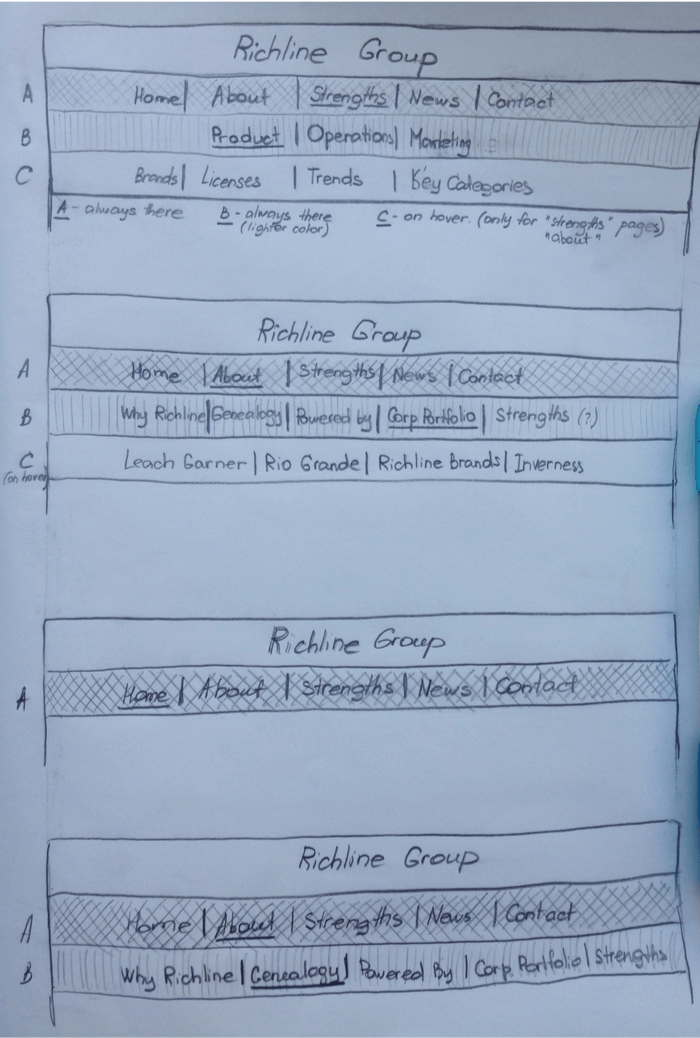 Richline Group
A Home | About | Strengths | News | Contact
B Product | Operations | Marketing
C Brands | Licenses | Trends | Key Categories
A - always there B - always there C - on hover. (only for "strengths" pages)
(lighter color) "about"
Richline Group
A Home | About | Strengths | News | Contact
B Why Richline | Genealogy | Powered by | Corp Portfolio | Strengths (?)
C Leach Garner | Rio Grande | Richline Brands | Inverness
(on hover)
Richline Group
A Home | About | Strengths | News | Contact
Richline Group
A Home | About | Strengths | News | Contact
B Why Richline | Genealogy | Powered By | Corp. Portfolio | Strengths